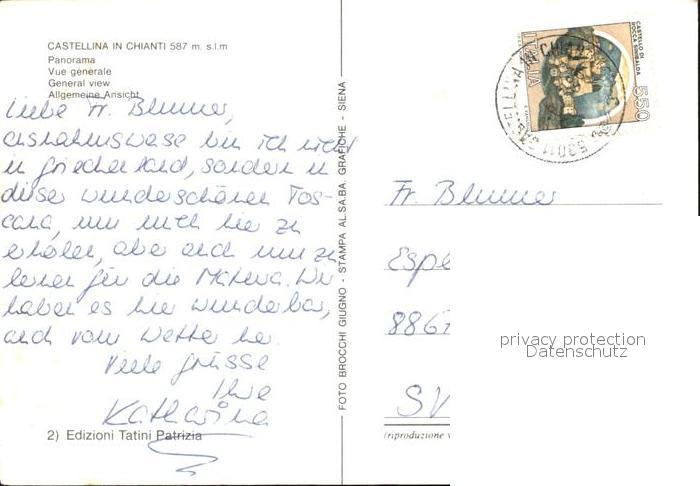 CASTELLINA IN CHIANTI 587 m. s.l.m
Panorama
Vue generale
General view
Allgemeine Ansicht
Liebe Fr. Blumer,
ausnahmsweise bin ich nicht
in Griechenland, sondern in
dieser wunderschönen Tos-
cana, um mich hier zu
erholen, aber auch um zu
lernen für die Matura. Wir
haben es hier wunderbar,
auch vom Wetter her.
Viele Grüsse
Ihre
Katharina
2) Edizioni Tatini Patrizia
FOTO BROCCHI GIUGNO - STAMPA AL.SA.BA. GRAFICHE - SIENA
CASTELLO DI
ROCCA SINIBALDA
550
ITALIA
CASTELLINA IN CHIANTI
53011
Fr. Blumer
Espe
886
SV
(riproduzione v
privacy protection
Datenschutz